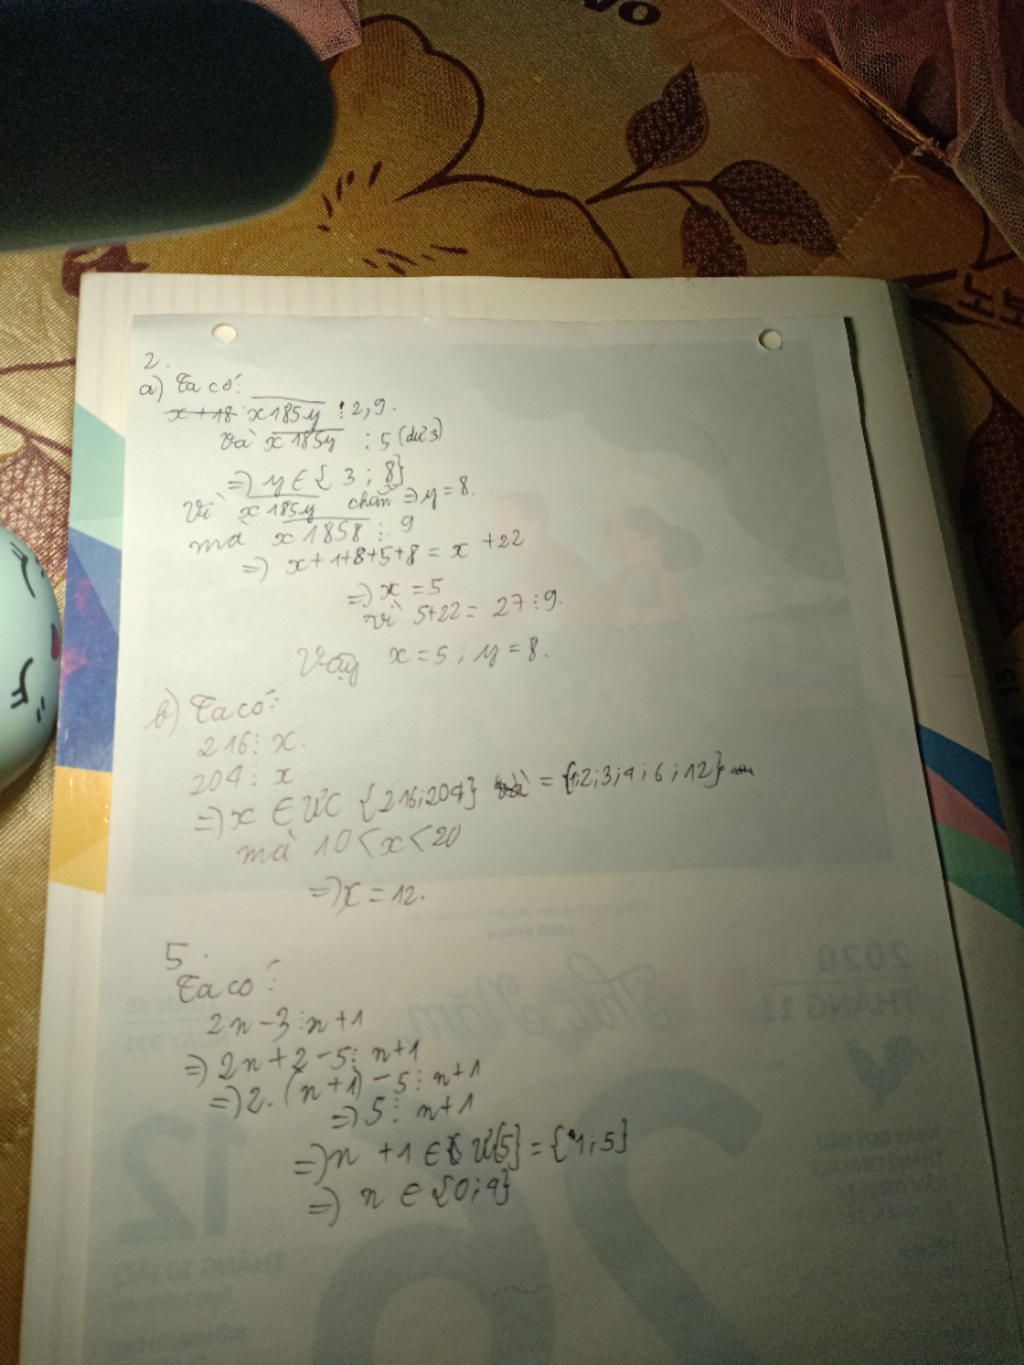 2.
a) Ta có:
x+18 x185y ⋮ 2,9.
và x185y : 5 (dư 3)
=> y ∈ { 3 ; 8}
Vì x185y chẵn => y = 8.
mà x1858 ⋮ 9
=> x+1+8+5+8 = x +22
=> x = 5
vì 5+22 = 27 ⋮ 9.
Vậy x = 5 ; y = 8.
b) Ta có:
216 ⋮ x.
204 ⋮ x
=> x ∈ ƯC {216;204} = {1;2;3;4;6;12}
mà 10 < x < 20
=> x = 12.
5.
Ta có:
2n - 3 ⋮ n+1
=> 2n + 2 - 5 ⋮ n+1
=> 2. (n+1) - 5 ⋮ n+1
=> 5 ⋮ n+1
=> n + 1 ∈ Ư{5} = {1;5}
=> n ∈ {0;4}
2020
THÁNG 11
Thứ Năm
12
26
THÁNG 10
15